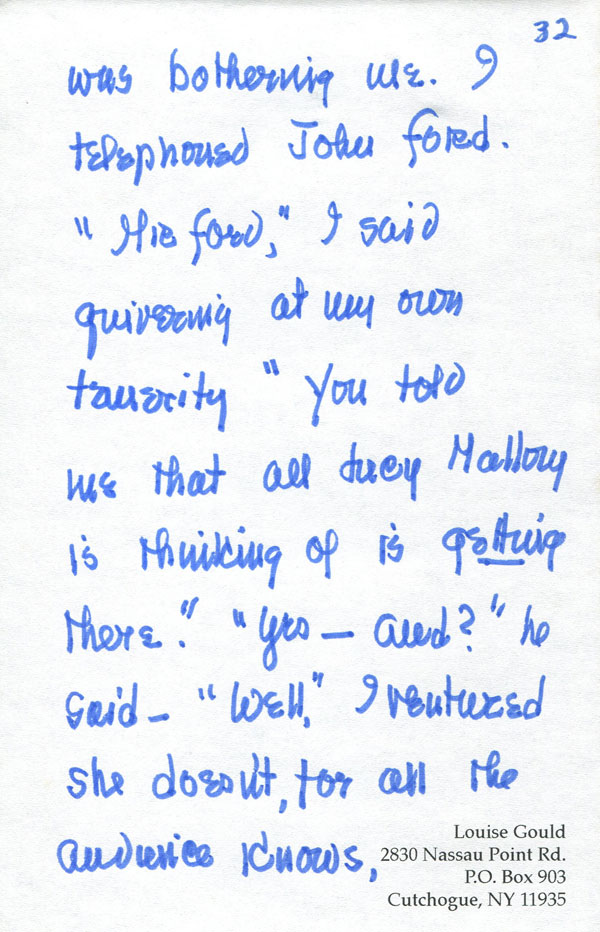 32
was bothering me. I
telephoned John Ford.
"Mr Ford," I said
quivering at my own
temerity "You told
me that all Lucy Mallory
is thinking of is getting
there." "Yes — and?" he
said — "Well," I ventured
she doesn't, for all the
audience knows,
Louise Gould
2830 Nassau Point Rd.
P.O. Box 903
Cutchogue, NY 11935